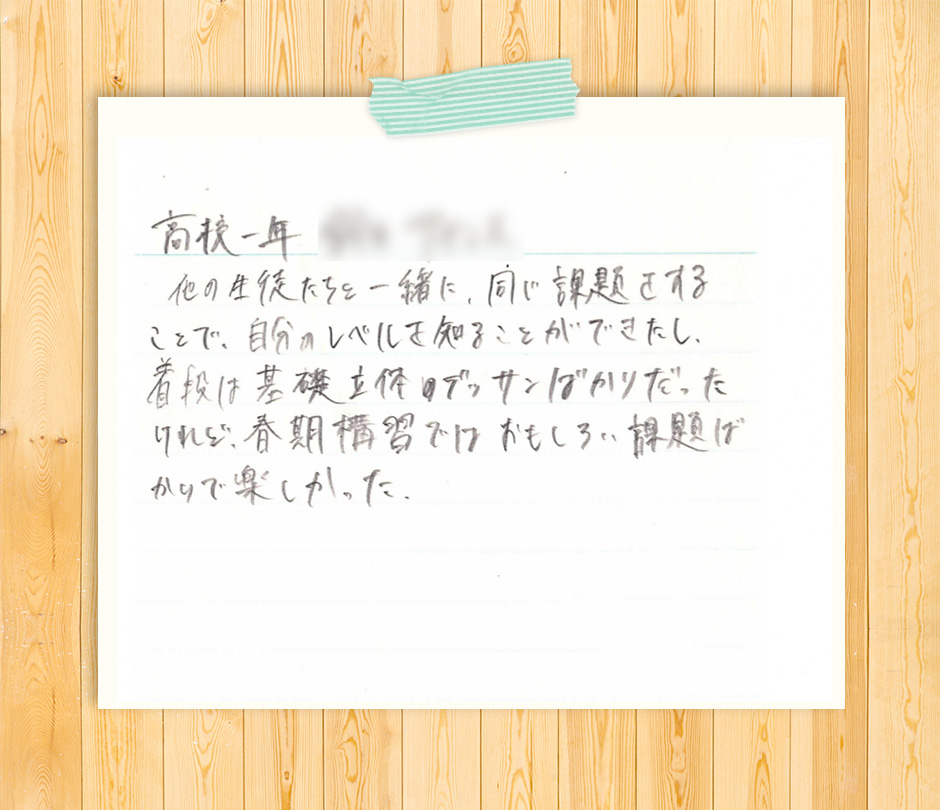 高校一年
他の生徒たちと一緒に、同じ課題をする
ことで、自分のレベルを知ることができたし、
着段は基礎立体のデッサンばかりだった
けれど、春期構習ではおもしろい課題ば
かりで楽しかった。